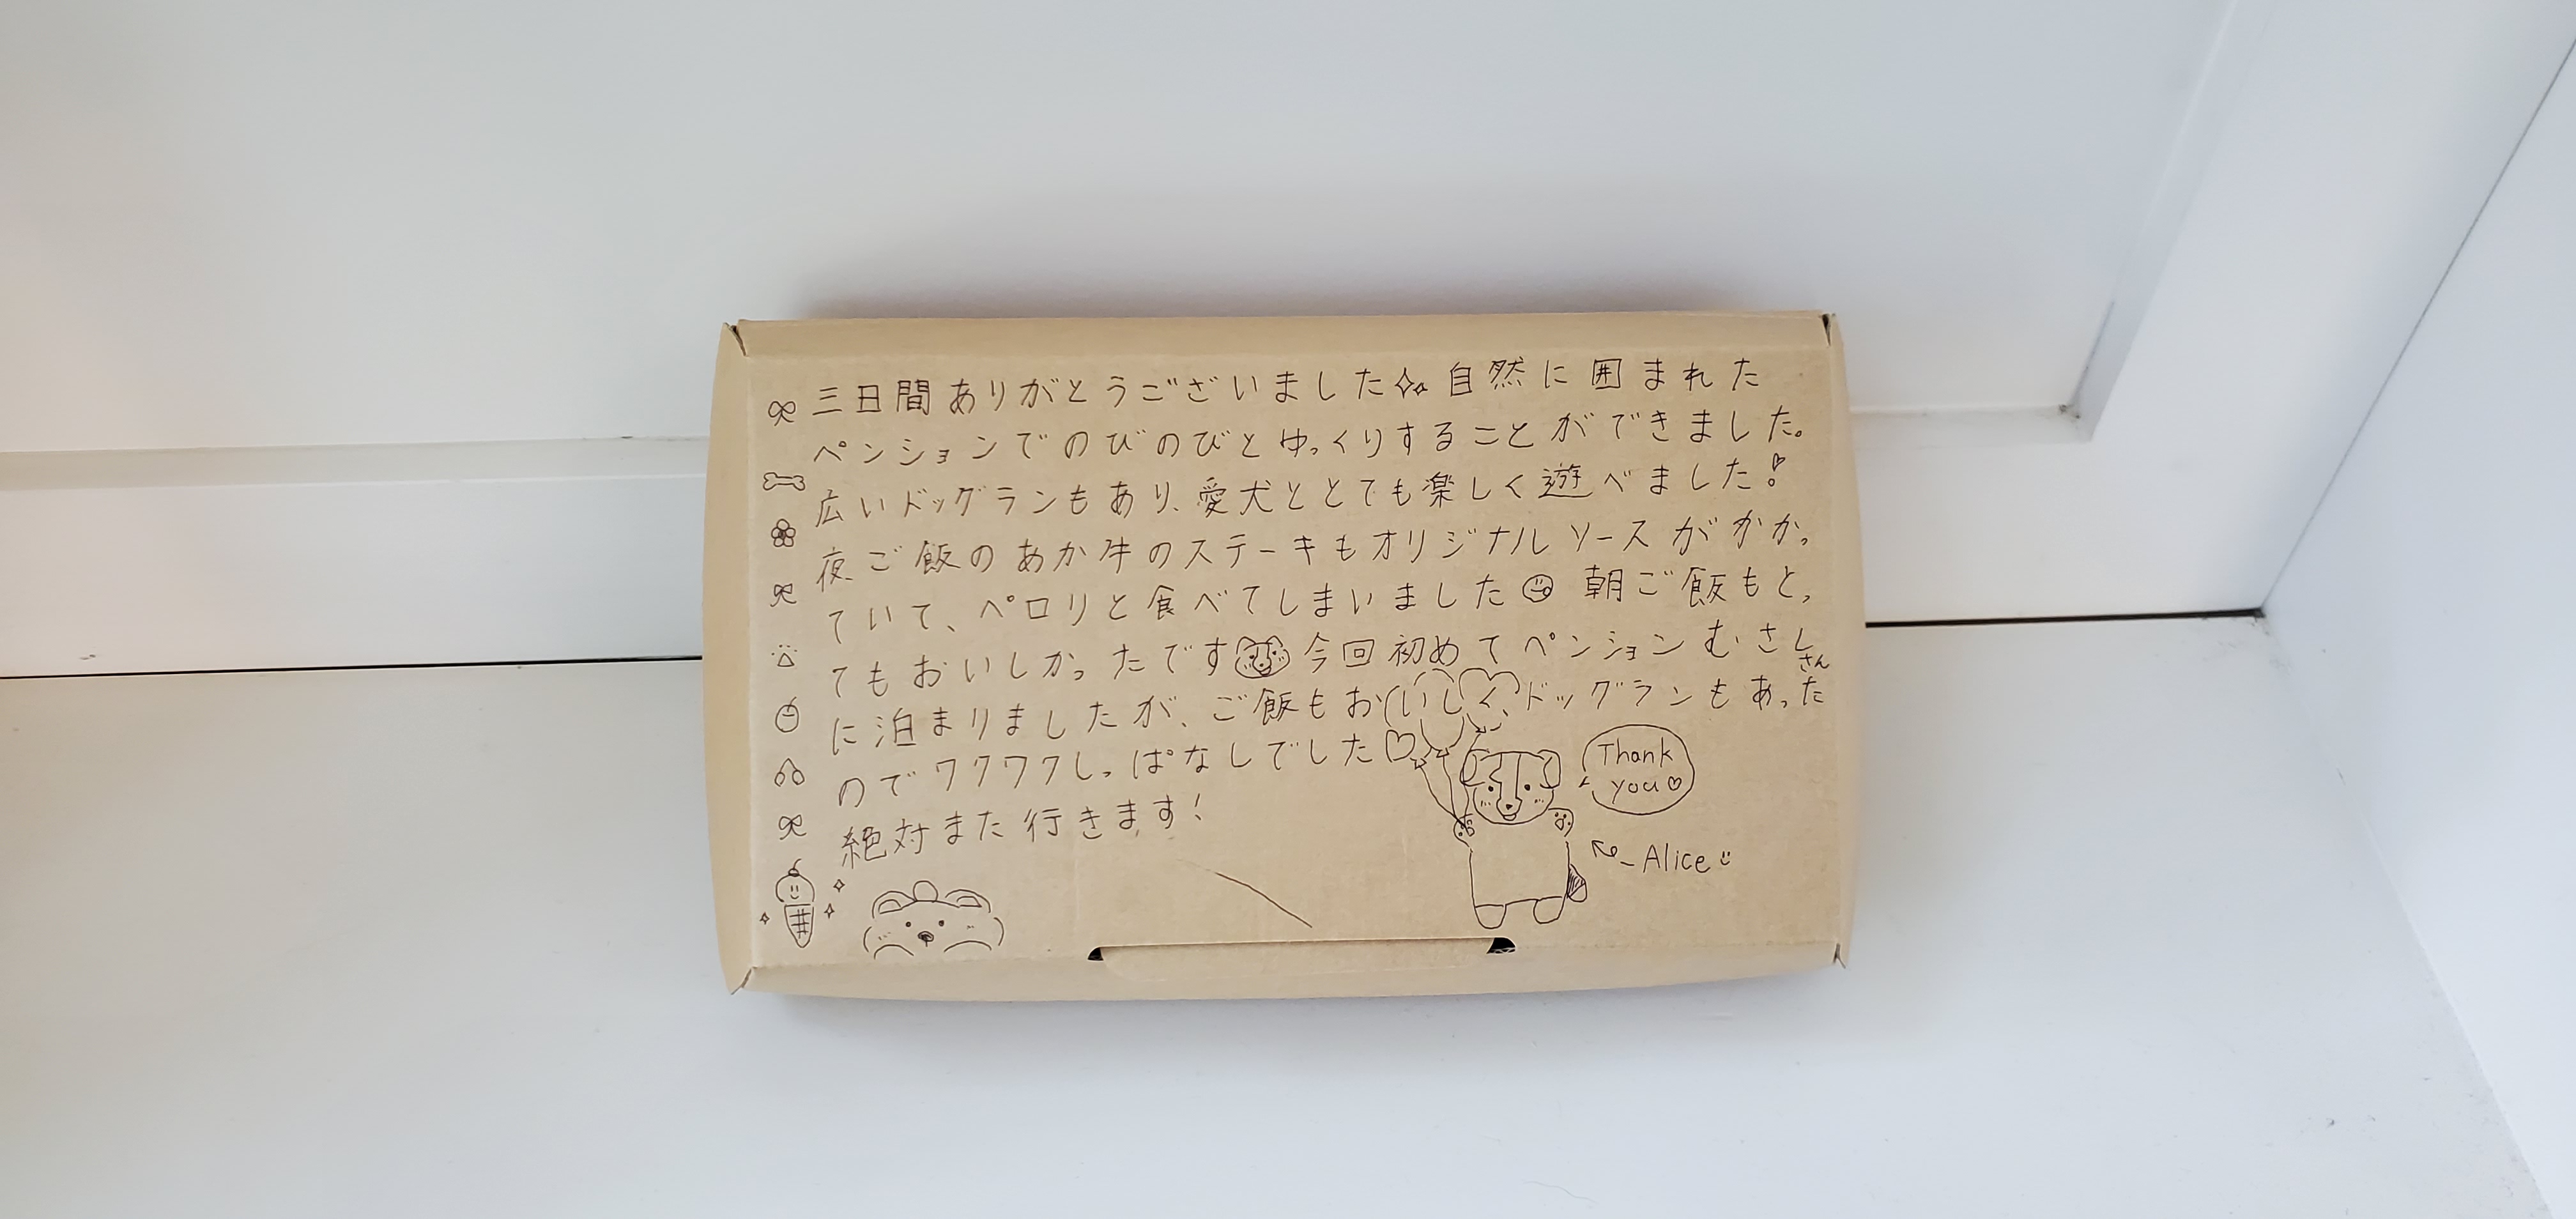 三日間ありがとうございました 自然に囲まれた
ペンションでのびのびとゆっくりすることができました。
広いドッグランもあり、愛犬ととても楽しく遊べました!
夜ご飯のあか牛のステーキもオリジナルソースがかかっ
ていて、ペロリと食べてしまいました 朝ご飯もとっ
てもおいしかったです 今回初めてペンションむさし
さん
に泊まりましたが、ご飯もおいしく、ドッグランもあった
のでワクワクしっぱなしでした♡
絶対また行きます!
Thank
you♡
-Alice